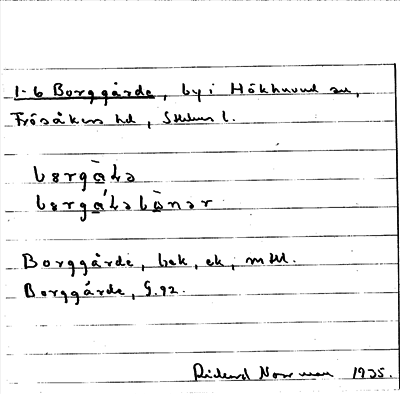 1-6 Borggårde, by i Hökhuvud sn,
Frösåkers hd, Sthlms l.
Borggårde, bek, ek, mtbl.
Borggårde, G.92.
Rickard Norrman 1935.